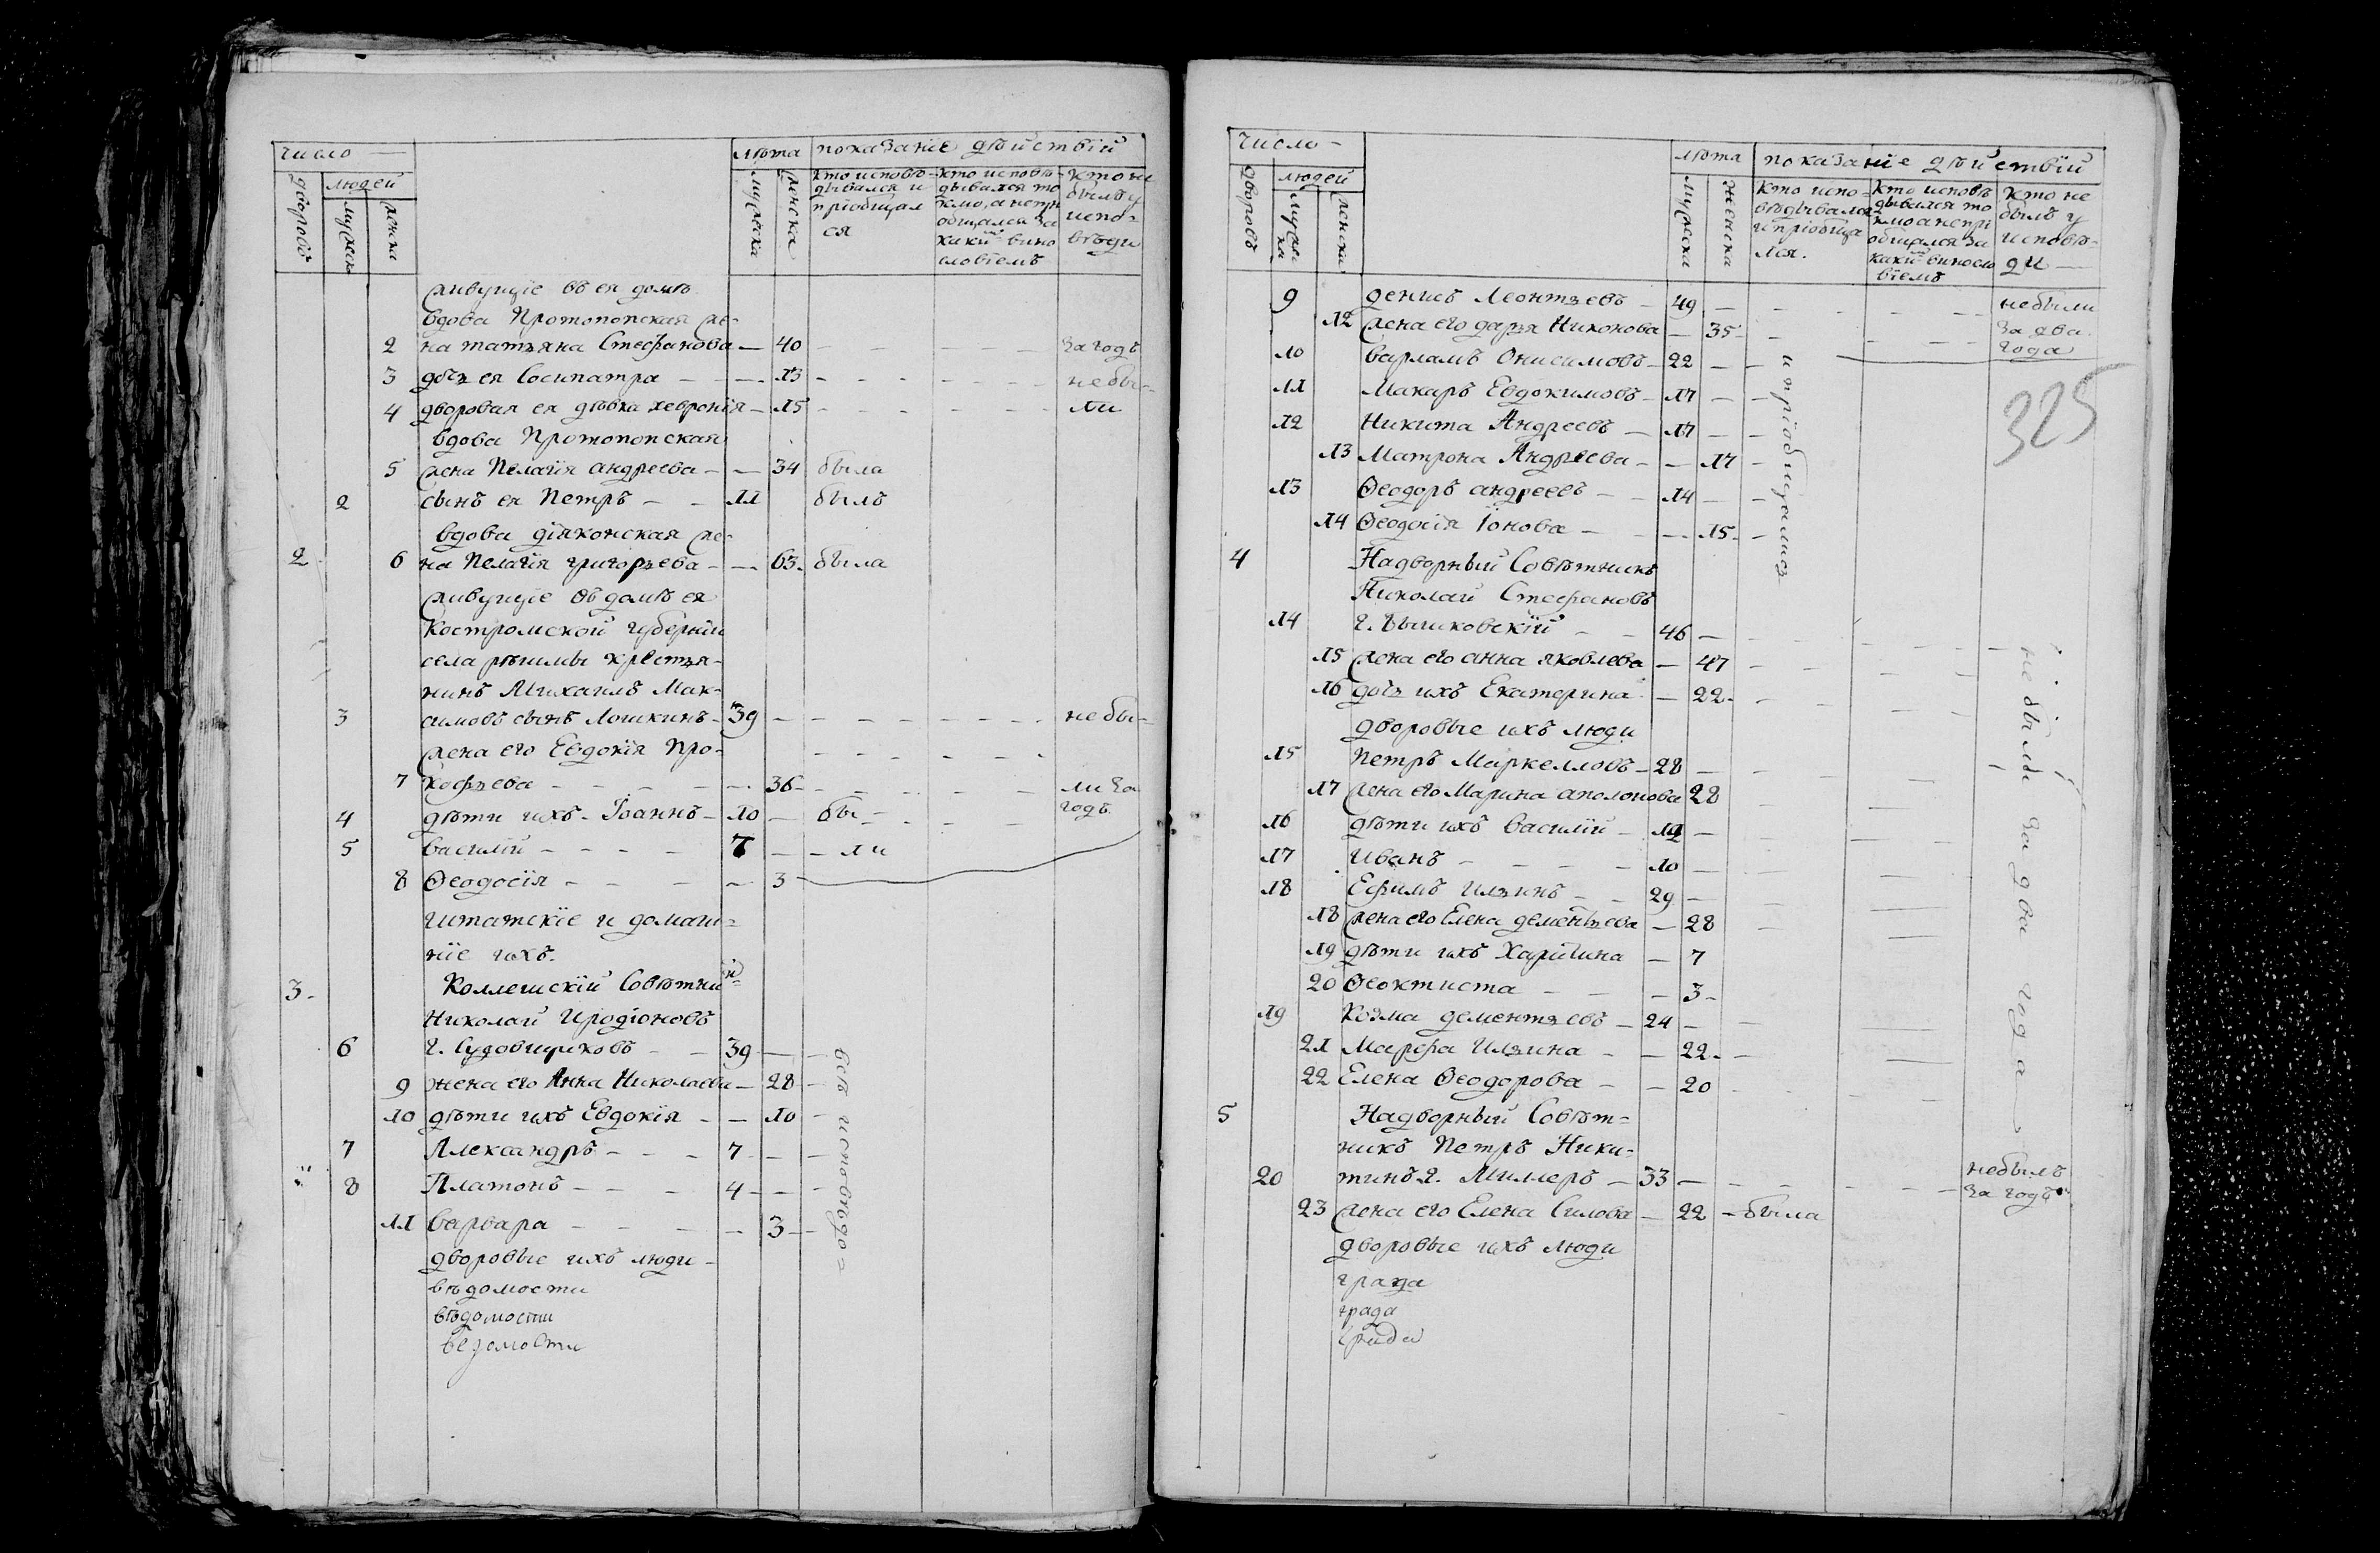 число
людей
лѣта показанїе дѣйствїй
дворовъ
мужеск
женска
мужеска
женска
кто исповѣ-
дывался и
прїобщал
ся
кто исповѣ-
дывался то
кмо, а непрї
общался за
какимъ вино
словїемъ
кто не
былъ у
испо-
вѣди
живущїе въ ея домѣ
вдова Протопопская же-
2 на татьяна Стефанова — 40 за годъ
3 дочь ея Сосипатра — 13 небы-
4 дворовая ея дѣвка хевронїя — 15 ли
вдова Протопопская
5 жена Пелагїя андреева — 34 была
2 сынъ ея Петръ — 11 былъ
вдова дїяконская же-
2 6 на Пелагїя григорьева — 63 была
живущїе въ домѣ ея
Костромской губернїи
села рѣшмы крестья-
нинъ Михаилъ Мак-
3 симовъ сынъ Лошкинъ — 39 небы-
жена его Евдокїя Про-
7 кофьева — 36 ли за
4 дѣти ихъ Іоаннъ — 10 бы- годъ
5 василїй — 7 — ли
8 Ѳеодосїя — 3
Штатскїе и домаш-
нїе ихъ.
3 Коллежскїй Совѣтни
Николай Иродїоновъ
6 г. Судовщиковъ — 39
9 жена его Анна Николаева — 28
10 дѣти ихъ Евдокїя — 10
7 Александръ — 7
8 Платонъ — 4
11 варвара — 3
всѣ исповѣдо-
дворовые ихъ люди
вѣдомости
вѣдомости
ведомости
число
людей
лѣта показанїе дѣйствїй
дворовъ
мужеска
женска
мужеска
женска
кто испо-
вѣдывался
и прїобща
лся.
кто исповѣ
дывался то
кмо а непрї
общался за
какимъ виносло
вїемъ
кто не
былъ у
исповѣ-
ди
9 денисъ Леонтьевъ — 49 небыли
12 жена его дарья Никонова — 35 за два
10 варламъ Онисимовъ — 22 года
11 Макаръ Евдокимовъ — 17
325
12 Никита Андреевъ — 17
13 Матрона Андреева — 17
13 Ѳеодоръ андреевъ — 14
14 Ѳеодосїя Іонова — 15
и прїобщались
4 Надворный Совѣтникъ
Николай Стефановъ
14 г. Вышковскїй — 46
15 жена его анна яковлева — 47
16 дочь ихъ Екатерина — 22
дворовые ихъ люди
15 Петръ Маркелловъ — 28
17 жена его Марина аполонова 28
16 дѣти ихъ василїй — 12
17 Иванъ — 10
18 Ефимъ Ильинъ — 29
18 жена его Елена дементьева — 28
19 дѣти ихъ Харитина — 7
20 Ѳеоктиста — 3
19 Козма дементьевъ — 24
21 Марфа Ильина — 22
22 Елена Ѳеодорова — 20
небыли за два года
5 Надворный Совѣт-
никъ Петръ Ники-
20 тинъ г. Миллеръ — 33 небылъ
за годъ
23 жена его Елена Силова — 22 — была
дворовые ихъ люди
града
града
града